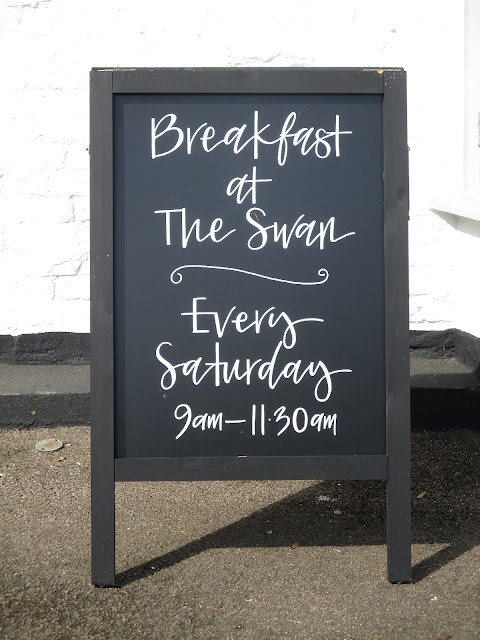 Breakfast
at
The Swan
Every
Saturday
9am–11·30am